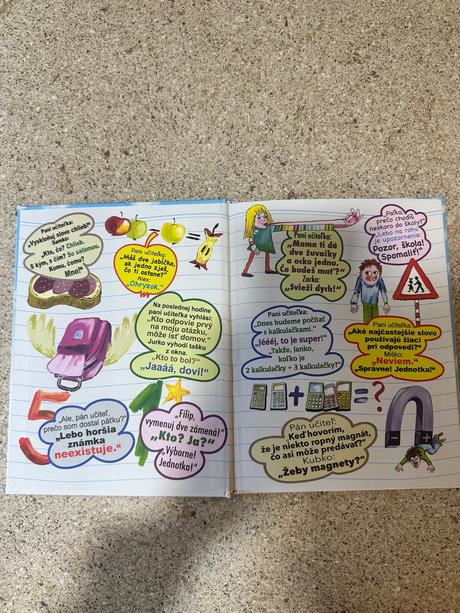 Pani učiteľka:
„Vyskloňuj slovo chlieb!“
Samko:
„Kto, čo? Chlieb.
S kým, s čím? So salámou.
Komu, čomu?
Mne!“
Pani učiteľka:
„Máš dve jabĺčka,
ak jedno zješ,
čo ti ostane?“
Alex:
„Ohryzok.“
Na poslednej hodine
pani učiteľka vyhlási:
„Kto odpovie prvý
na moju otázku,
môže ísť domov.“
Jurko vyhodí tašku
z okna.
„Kto to bol?“
„Jaááá, dovi!“
„Ale, pán učiteľ,
prečo som dostal päťku?“
„Lebo horšia
známka
neexistuje.“
„Filip,
vymenuj dve zámená!“
„Kto? Ja?“
„Výborne!
Jednotka!“
Pani učiteľka:
„Mama ti dá
dve žuvačky
a ocko jednu.
Čo budeš mať?“
Zorka:
„Svieži dych!“
„Paľko,
prečo chodíš
neskoro do školy?“
„Lebo na rohu
je upozornenie:
Pozor, škola!
(Spomaliť!)“
Pani učiteľka:
„Dnes budeme počítať
s kalkulačkami.“
„Iéééj, to je super!“
„Takže, Janko,
koľko je
2 kalkulačky + 3 kalkulačky?“
Pani učiteľka:
„Aké najčastejšie slovo
používajú žiaci
pri odpovedi?“
Miško:
„Neviem.“
„Správne! Jednotka!“
+ = ?
Pán učiteľ:
„Keď hovorím,
že je niekto ropný magnát,
čo asi môže predávať?“
Kubko:
„Žeby magnety?“